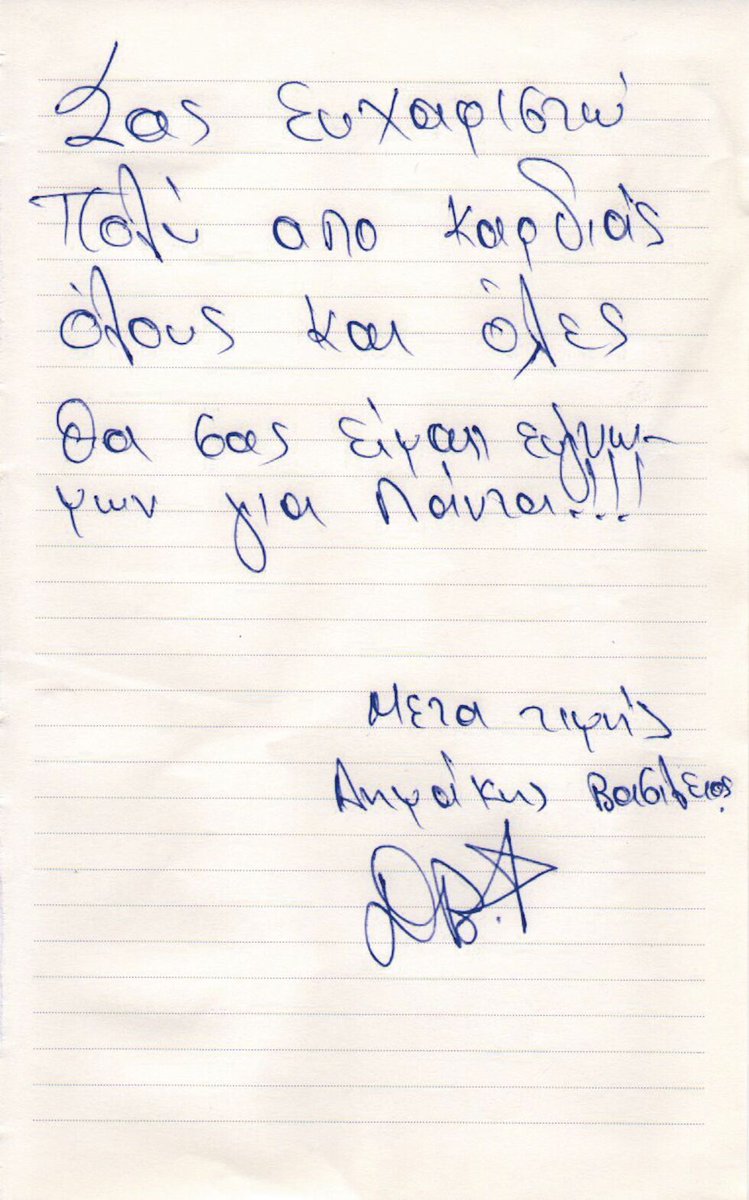 Σας ευχαριστώ
Πολύ απο καρδιάς
όλους και όλες
Θα σας είμαι ευγνώ-
μων για Πάντα!!!
Μετα τιμής
Δημάκης Βασίλειος
ΔΒ.